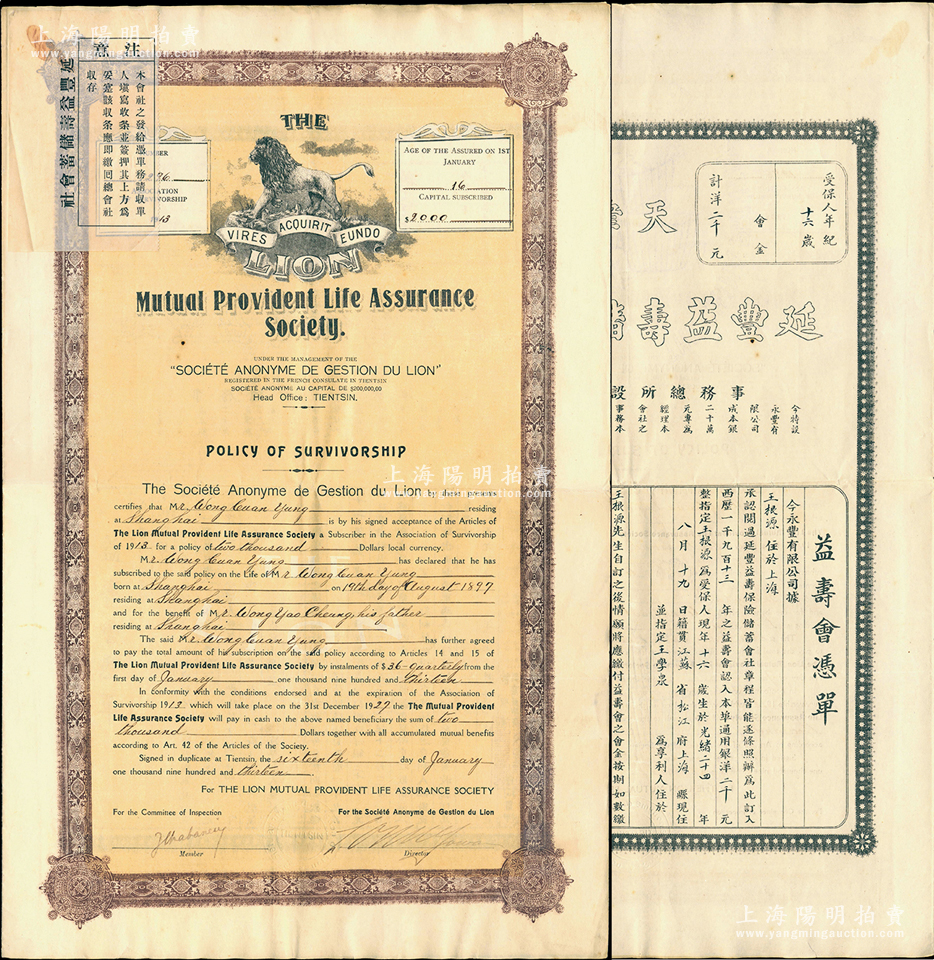 上海陽明拍賣
www.yangmingauction.com
注意
本會社之發給憑單務請收單
人塡寫收条並簽押其上方爲
妥當該收条應即繳回總會社
收存
延豐益壽儲蓄會社
1913
THE
LION
VIRES ACQUIRIT EUNDO
AGE OF THE ASSURED ON 1ST
JANUARY
16
CAPITAL SUBSCRIBED
$2000
Mutual Provident Life Assurance
Society.
UNDER THE MANAGEMENT OF THE
"SOCIÉTÉ ANONYME DE GESTION DU LION"
REGISTERED IN THE FRENCH CONSULATE IN TIENTSIN
SOCIÉTÉ ANONYME AU CAPITAL DE $200,000,00
Head Office: TIENTSIN.
POLICY OF SURVIVORSHIP
The Société Anonyme de Gestion du Lion by these presents
certifies that Mr. Wong Cuan Yung residing
at Shanghai is by his signed acceptance of the Articles of
The Lion Mutual Provident Life Assurance Society a Subscriber in the Association of Survivorship
of 1913 for a policy of two thousand Dollars local currency.
Mr. Wong Cuan Yung has declared that he has
subscribed to the said policy on the Life of Mr. Wong Cuan Yung
born at Shanghai on 19th day of August 1897
residing at Shanghai
and for the benefit of Mr. Wong Yao Cheung, his father
residing at Shanghai
The said Mr. Wong Cuan Yung has further agreed
to pay the total amount of his subscription on the said policy according to Articles 14 and 15 of
The Lion Mutual Provident Life Assurance Society by instalments of $36 quarterly from the
first day of January one thousand nine hundred and thirteen
In conformity with the conditions endorsed and at the expiration of the Association of
Survivorship 1913 which will take place on the 31st December 1927 the The Mutual Provident
Life Assurance Society will pay in cash to the above named beneficiary the sum of two
thousand Dollars together with all accumulated mutual benefits
according to Art. 42 of the Articles of the Society.
Signed in duplicate at Tientsin, the sixteenth day of January
one thousand nine hundred and thirteen
For THE LION MUTUAL PROVIDENT LIFE ASSURANCE SOCIETY
For the Committee of Inspection
For the Société Anonyme de Gestion du Lion
Member
Director
受保人年紀
十六歲
會金
計洋二千元
天
延豐益壽
事務總所設
今特設
永豐有
限公司
成本銀
二十萬
元專爲
經理本
會社之
事務本
益壽會憑單
今永豐有限公司據
王根源 住於上海
承認閱過延豐益壽保險儲蓄會社章程皆能逐條照辦爲此訂入
西歷一千九百十三 年之益壽會認入本埠通用銀洋二千 元
整指定王根源爲受保人現年十六 歲生於光緒二十四 年
八月十九 日籍貫江蘇 省松江 府上海 縣現住
並指定王學泉 爲享利人住於
王根源先生自訂之後情願將應繳付益壽會之會金按期如數繳
上海陽明拍賣
上海陽明拍賣
www.yangmingauction.com